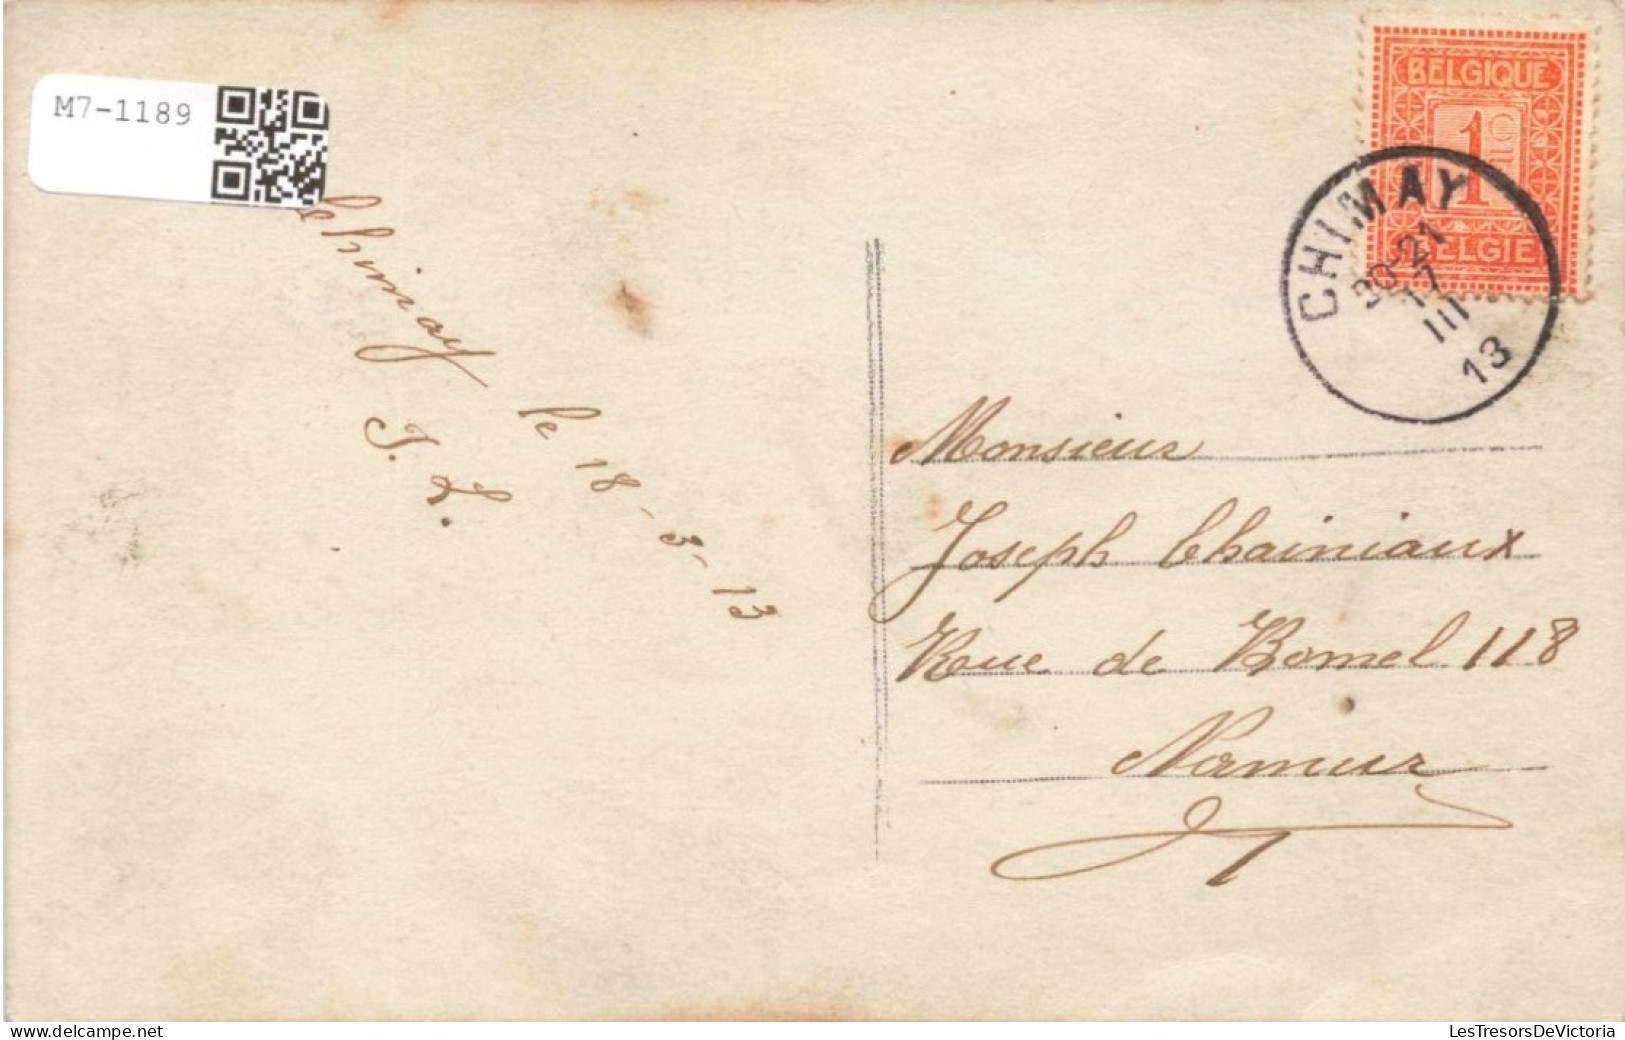 M7-1189
BELGIQUE
1
BELGIE
CHIMAY
20-21
17
III
13
Chimay le 18-3-13
J. L.
Monsieur
Joseph Chainiaux
Rue de Bomel 118
Namur
LesTresorsDeVictoria